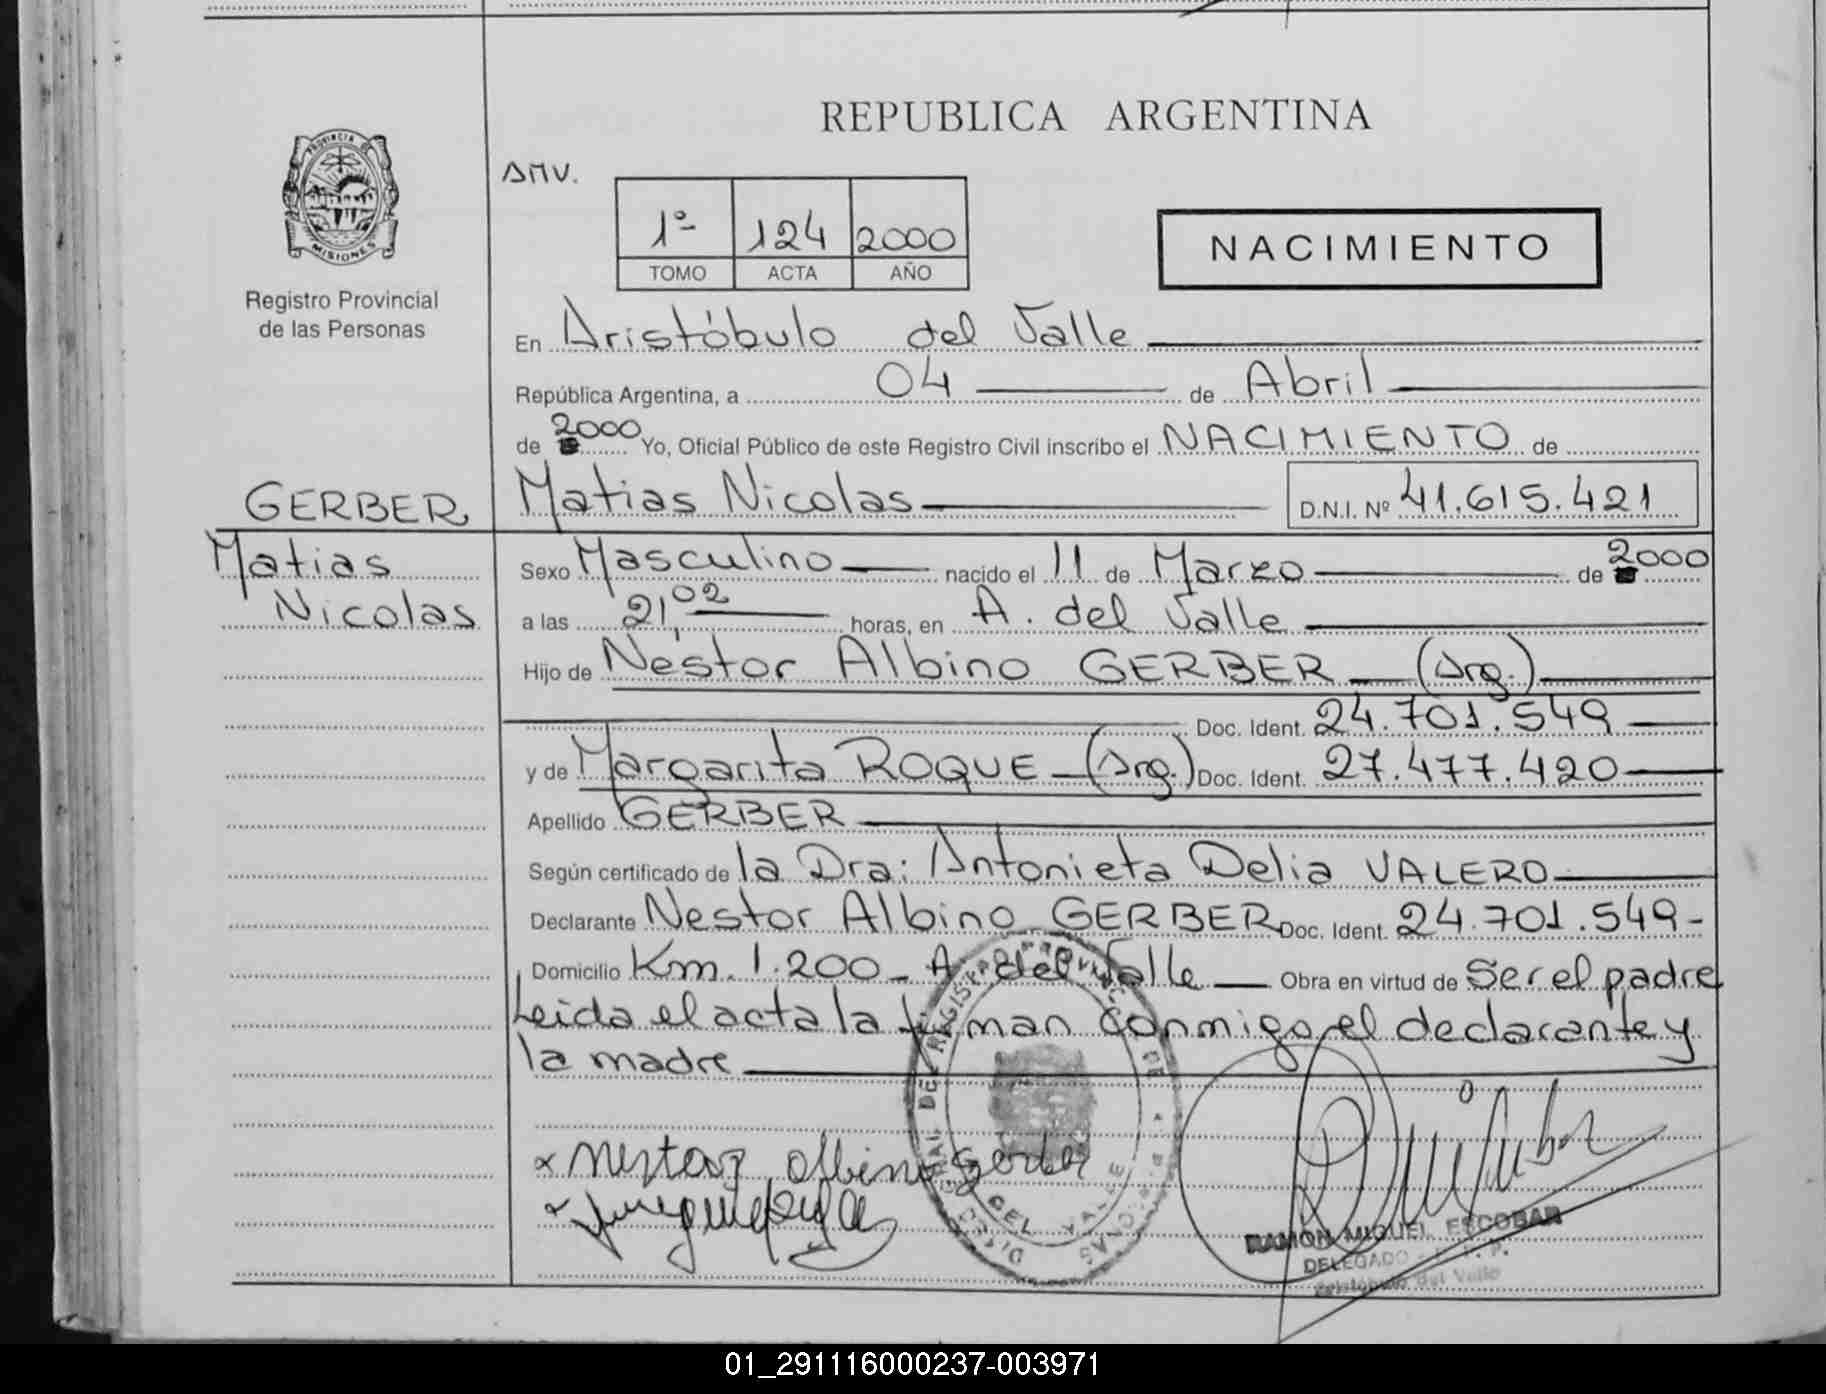 REPUBLICA ARGENTINA
PROVINCIA DE
MISIONES
Registro Provincial
de las Personas
AMV.
1º 124 2000
TOMO ACTA AÑO
NACIMIENTO
En Aristóbulo del Valle
República Argentina, a 04 de Abril
de 2000 Yo, Oficial Público de este Registro Civil inscribo el NACIMIENTO de
GERBER
Matias Nicolas D.N.I. Nº 41.615.421
Matias
Nicolas
Sexo Masculino nacido el 11 de Marzo de 2000
a las 21,02 horas, en A. del Valle
Hijo de Nestor Albino GERBER (Arg.)
Doc. Ident. 24.701.549
y de Margarita ROQUE (Arg.) Doc. Ident. 27.477.420
Apellido GERBER
Según certificado de la Dra: Antonieta Delia VALERO
Declarante Nestor Albino GERBER Doc. Ident. 24.701.549-
Domicilio Km. 1.200 - A. del Valle Obra en virtud de Ser el padre
Leida el acta la firman conmigo el declarante y
la madre
x Nestor albino gerber
DEL VALLE
RAMON MIGUEL ESCOBAR
DELEGADO
Aristóbulo del Valle
01_291116000237-003971